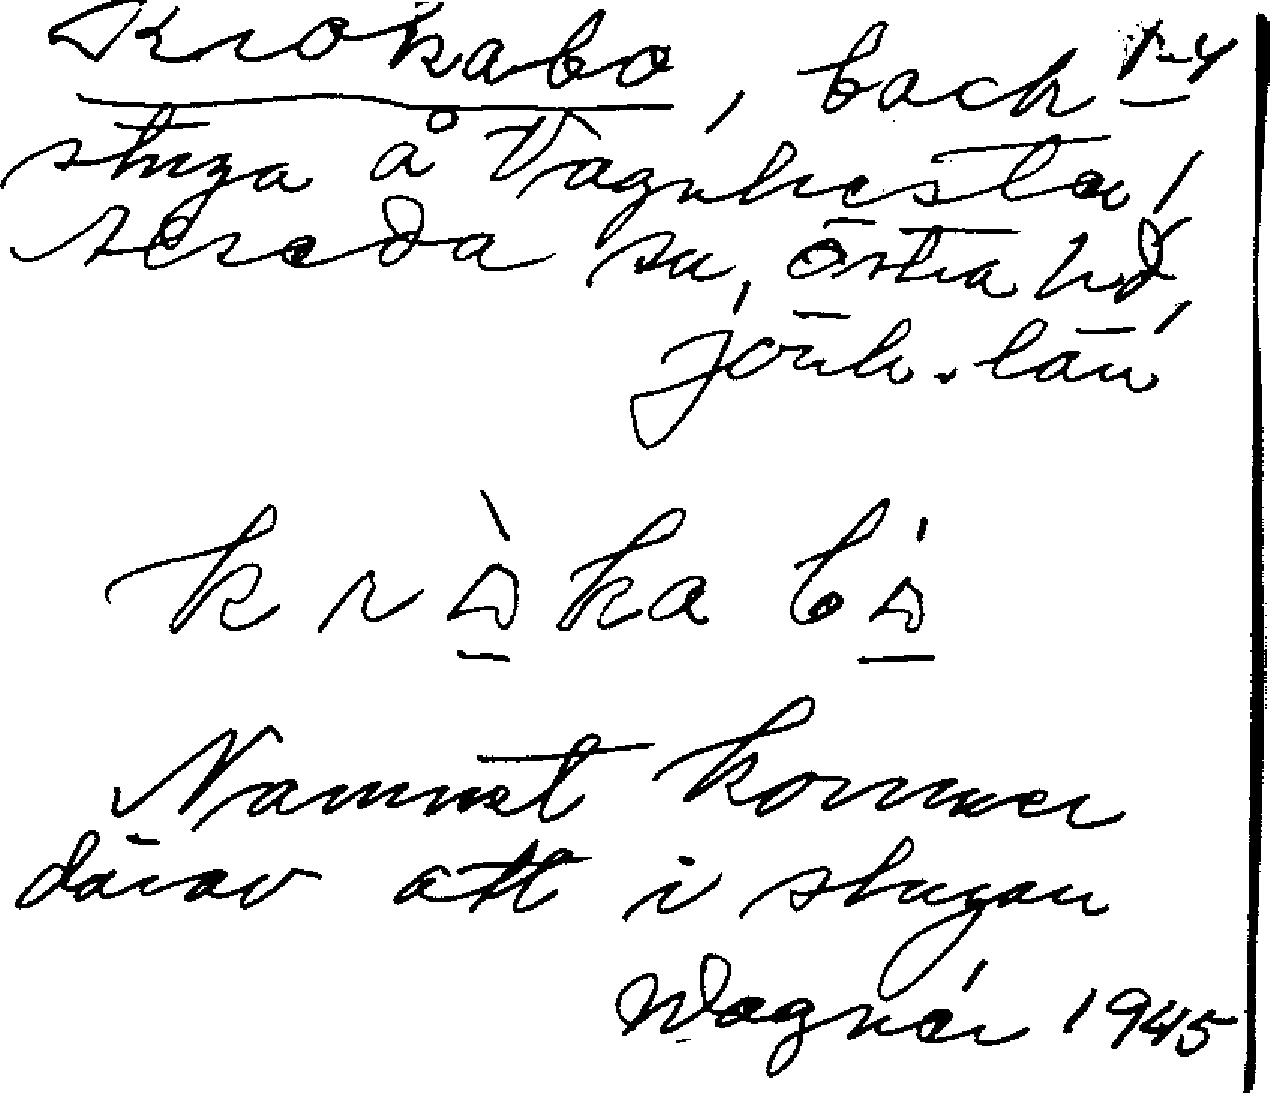 Krokabo, back 1-4
stuga å Vagnhester,
Skreda sn, Östra hd,
Jönk. län
kråkabå
Namnet kommer
därav att i stugan
Wagnér 1945